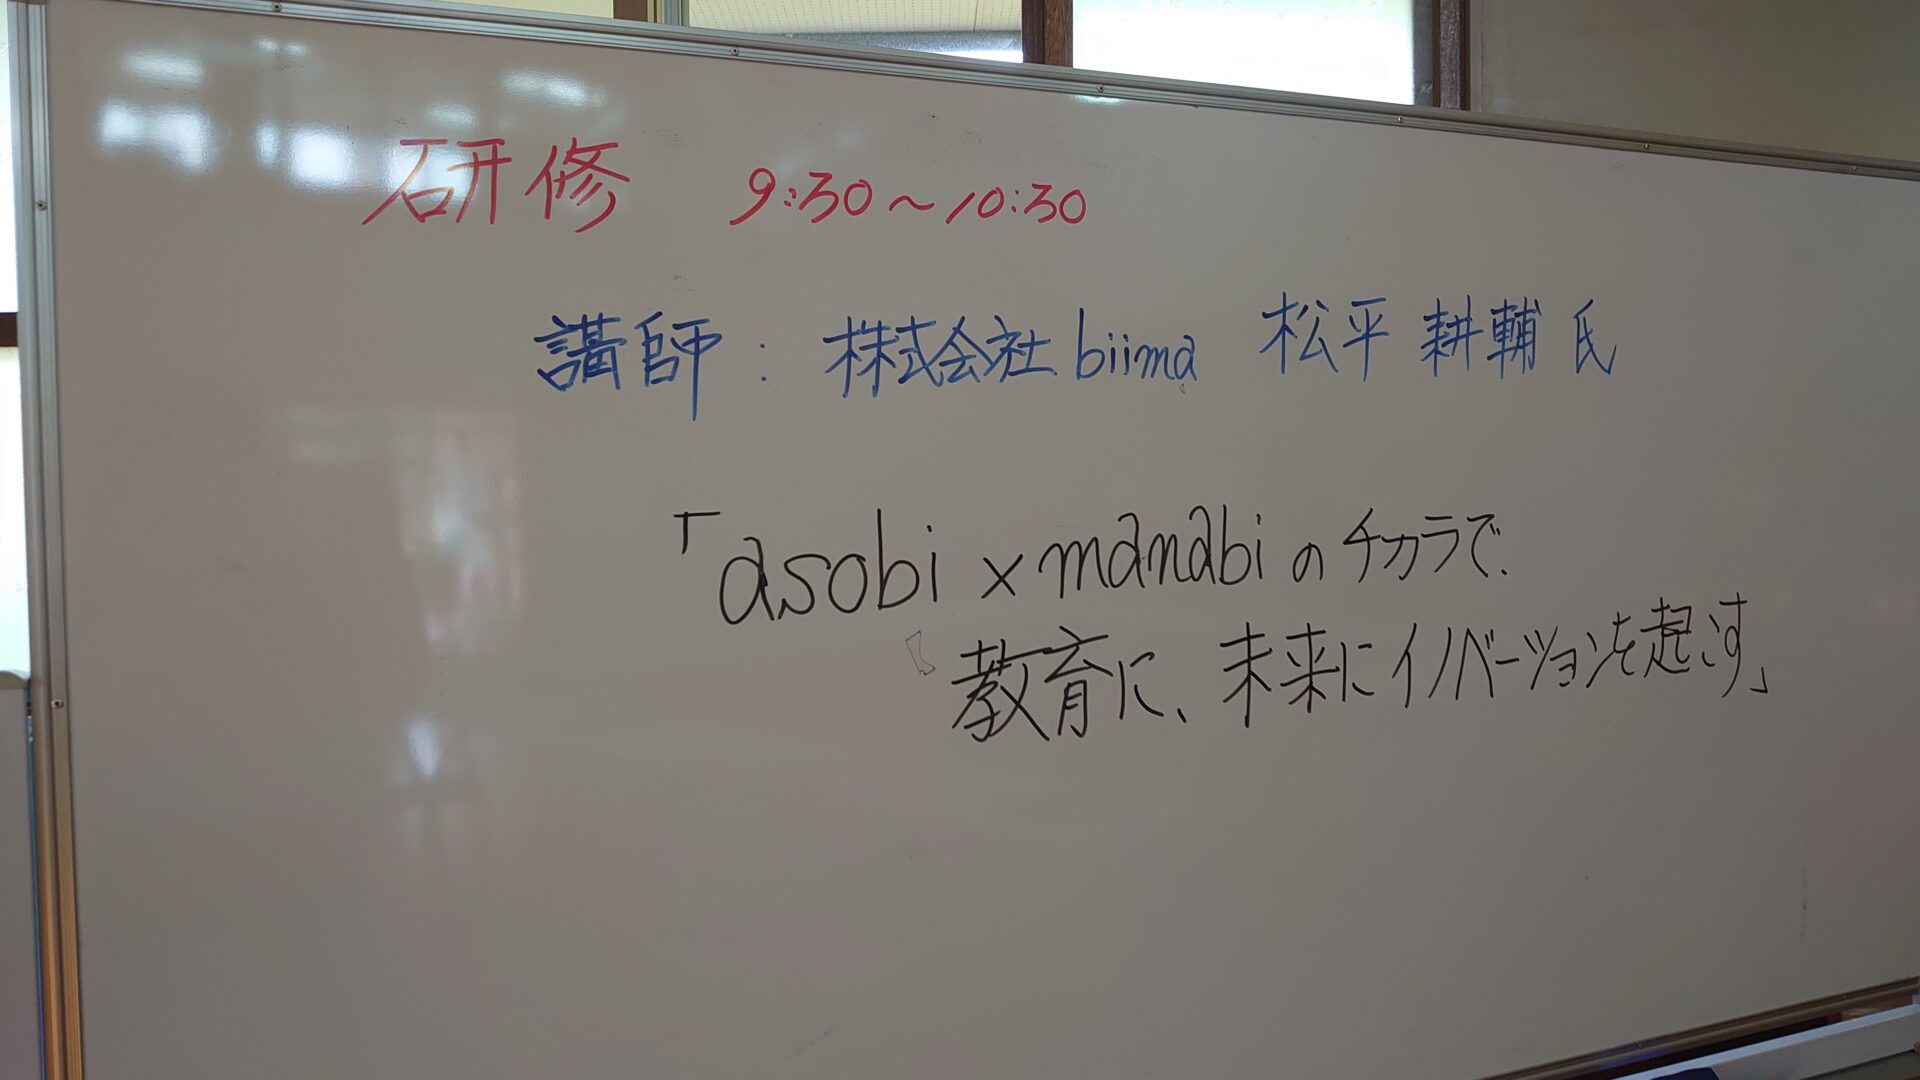 研修 9:30～10:30
講師：株式会社biima 松平 耕輔 氏
「asobi×manabiのチカラで、
教育に、未来にイノベーションを起こす」